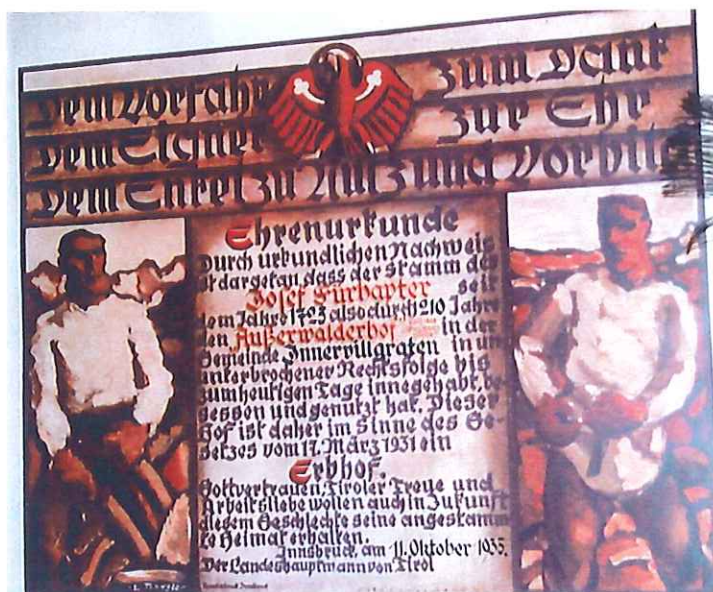 Dem Vorfahr zum Dank
Dem Eigner zur Ehr
Dem Enkel zu Nutz und Vorbild
Ehrenurkunde
Durch urkundlichen Nachweis
ist dargetan, dass der Stamm des
Josef Fürhapter seit
dem Jahre 1723 also durch 210 Jahre
den Außerwalderhof in der
Gemeinde Innervillgraten in un
unterbrochener Rechtsfolge bis
zum heutigen Tage innegehabt, be-
sessen und genutzt hat. Dieser
Hof ist daher im Sinne des Ge-
setzes vom 17. März 1931 ein
Erbhof.
Gottvertrauen, Tiroler Treue und
Arbeitsliebe wollen auch in Zukunft
diesem Geschlechte seine angestamm
te Heimat erhalten.
Innsbruck, am 11. Oktober 1935.
Der Landeshauptmann von Tirol